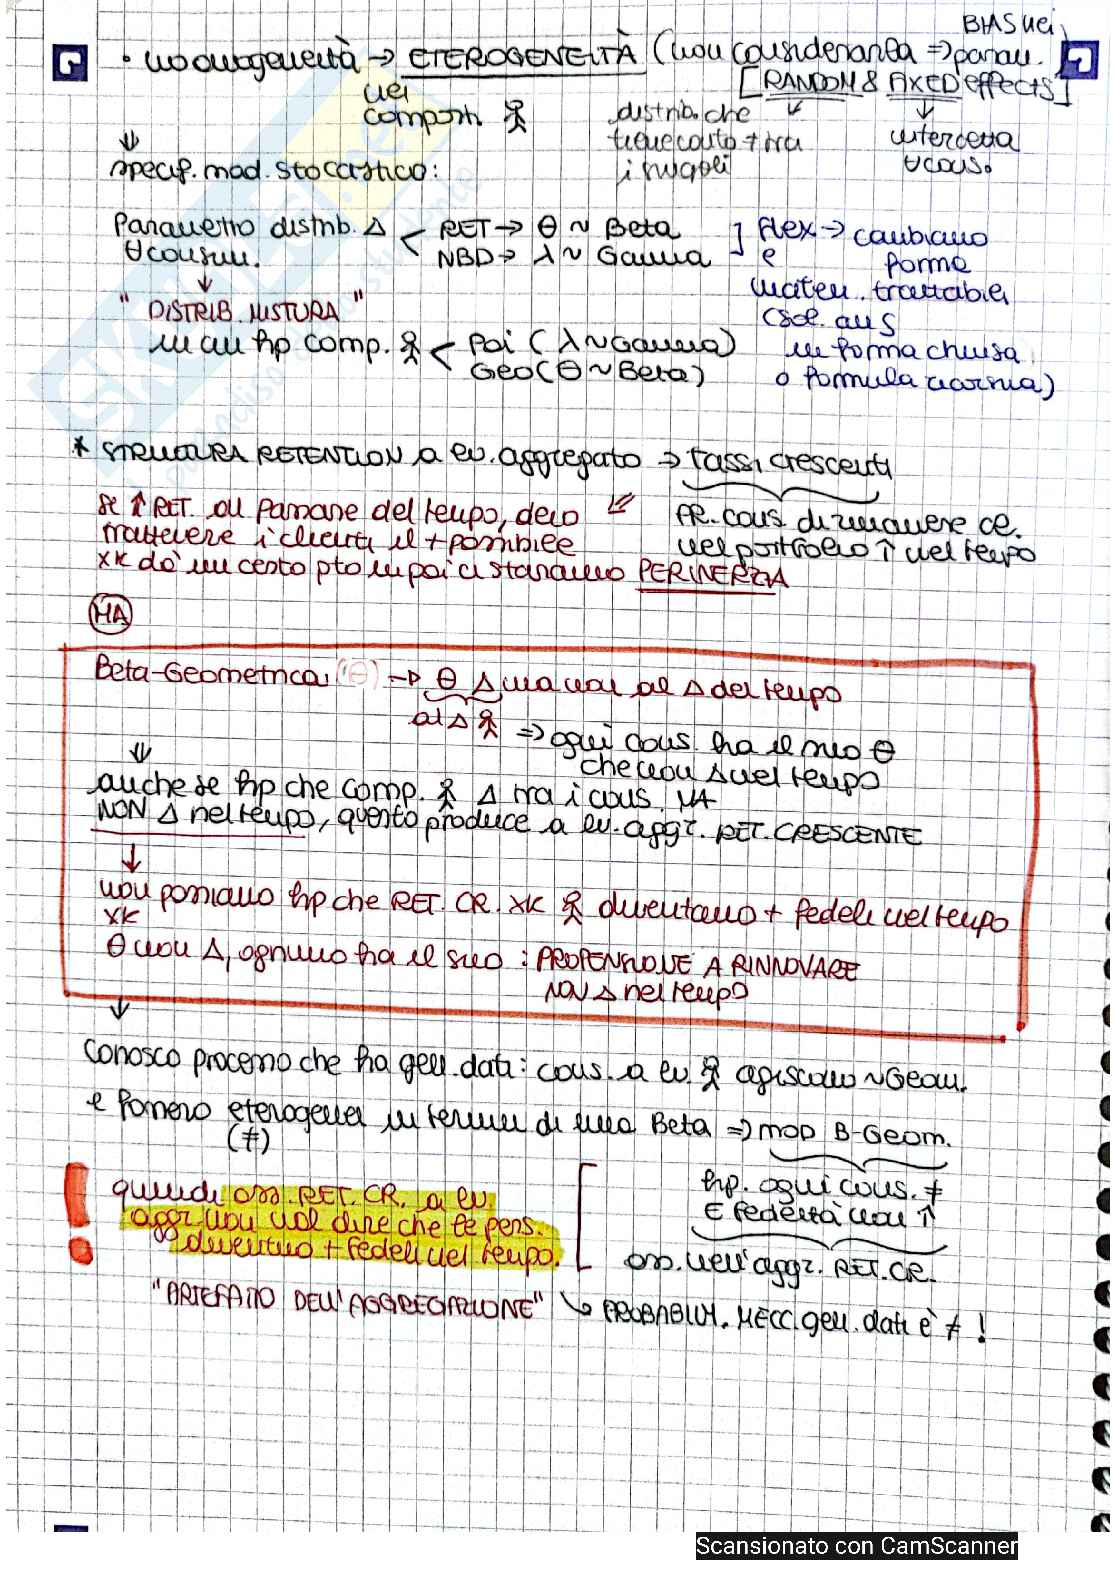 BIAS nei
• no omogeneità → ETEROGENEITÀ (non considerarla ⇒ param.
[RANDOM & FIXED effects]
nei
comport.
distrib. che
tiene conto + tra
i singoli
intercetta
∀ cons.
⇓
specif. mod. stocastico:
Parametro distrib. Δ
∀ consum.
< RET → θ ~ Beta
NBD → λ ~ Gamma
] flex → cambiano
e forma
matem. trattabile
(sol. an
in forma chiusa
o formula ricorsiva)
↓
"DISTRIB. MISTURA"
in cui hp comp. < Poi (λ~Gamma)
Geo (θ~Beta)
* STRUTTURA RETENTION a lv. aggregato → tassi crescenti
se ↑ RET. al passare del tempo, devo
trattenere i clienti il + possibile
xk dà un certo pto in poi ci staranno PER INERZIA
⇙
PR. cons. di rimanere cl.
nel portfolio ↑ nel tempo
MA
Beta-Geometrica (θ) → θ Δ ma non al Δ del tempo
al Δ ⇒ ogni cons. ha il suo θ
che non Δ nel tempo
⇓
anche se hp che comp. Δ tra i cons. MA
NON Δ nel tempo, questo produce a lv. aggr. RET. CRESCENTE
↓
non possiamo hp che RET. CR. xk diventano + fedeli nel tempo
xk
θ non Δ, ognuno ha il suo : PROPENSIONE A RINNOVARE
NON Δ nel tempo
⇓
Conosco processo che ha gen. dati : cons. a lv. agiscono ~Geom.
e fossero eterogenei in termini di una Beta ⇒ MOD B-Geom.
(≠)
! quindi oss. RET. CR. a lv.
aggr. non vuol dire che le pers.
diventino + fedeli nel tempo.
hp. ogni cons. ≠
E fedeltà non ↑
oss. nell'aggr. RET. CR.
"ARTEFATTO DELL'AGGREGAZIONE" ↳ PROBABILM. MECC. gen. dati è ≠ !
Scansionato con CamScanner